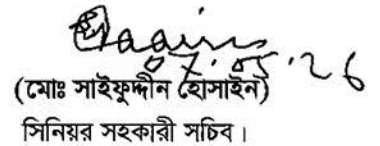 07.05.26
(মোঃ সাইফুদ্দীন হোসাইন)
সিনিয়র সহকারী সচিব।